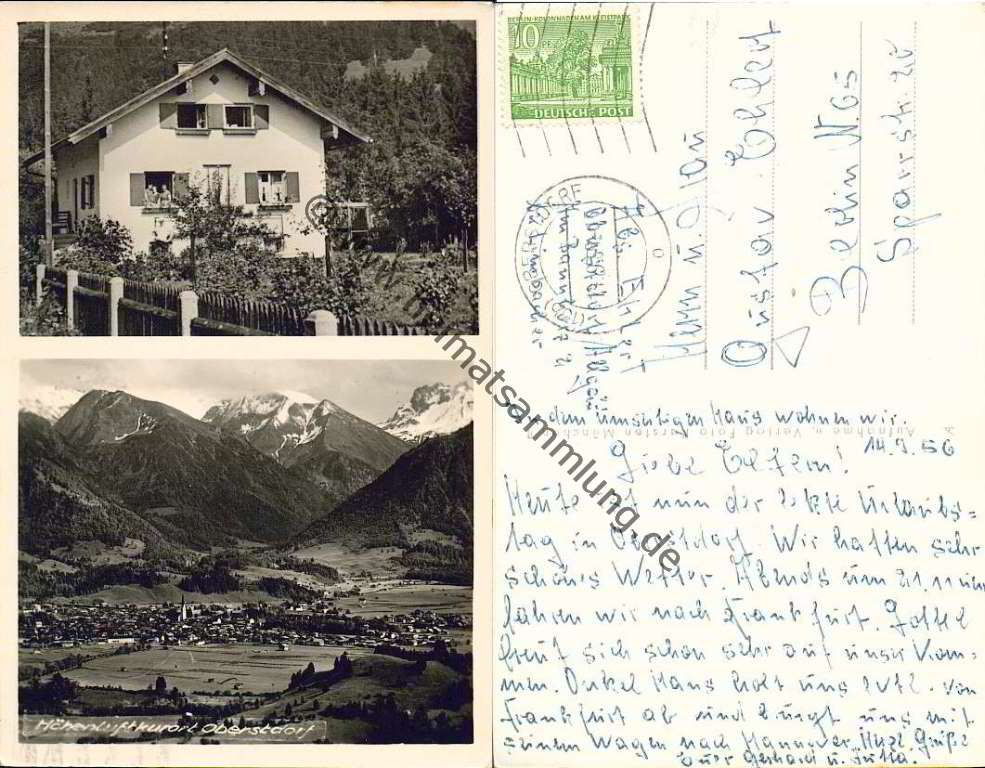 Höhenluftkurort Oberstdorf
© www.heimatsammlung.de
BERLIN-KOLONNADEN AM KLEISTPARK
10
DEUTSCHE POST
Herrn u. Frau
Gustav Ehlert
Berlin N. 65
Sparrstr. 25
dem umseitigen Haus wohnen wir.
Aufnahme u. Verlag Foto
14.9.56
Liebe Eltern!
Heute ist nun der letzte Urlaubs=
tag in Oberstdorf. Wir hatten sehr
schönes Wetter. Abends um 21.11 Uhr
fahren wir nach Frankfurt.
freut sich schon sehr auf unser Kom=
men. Onkel Hans holt uns evtl. von
Frankfurt ab und bringt uns mit
seinem Wagen nach Hannover. Herzl. Grüße
Euer Gerhard u. Jutta.